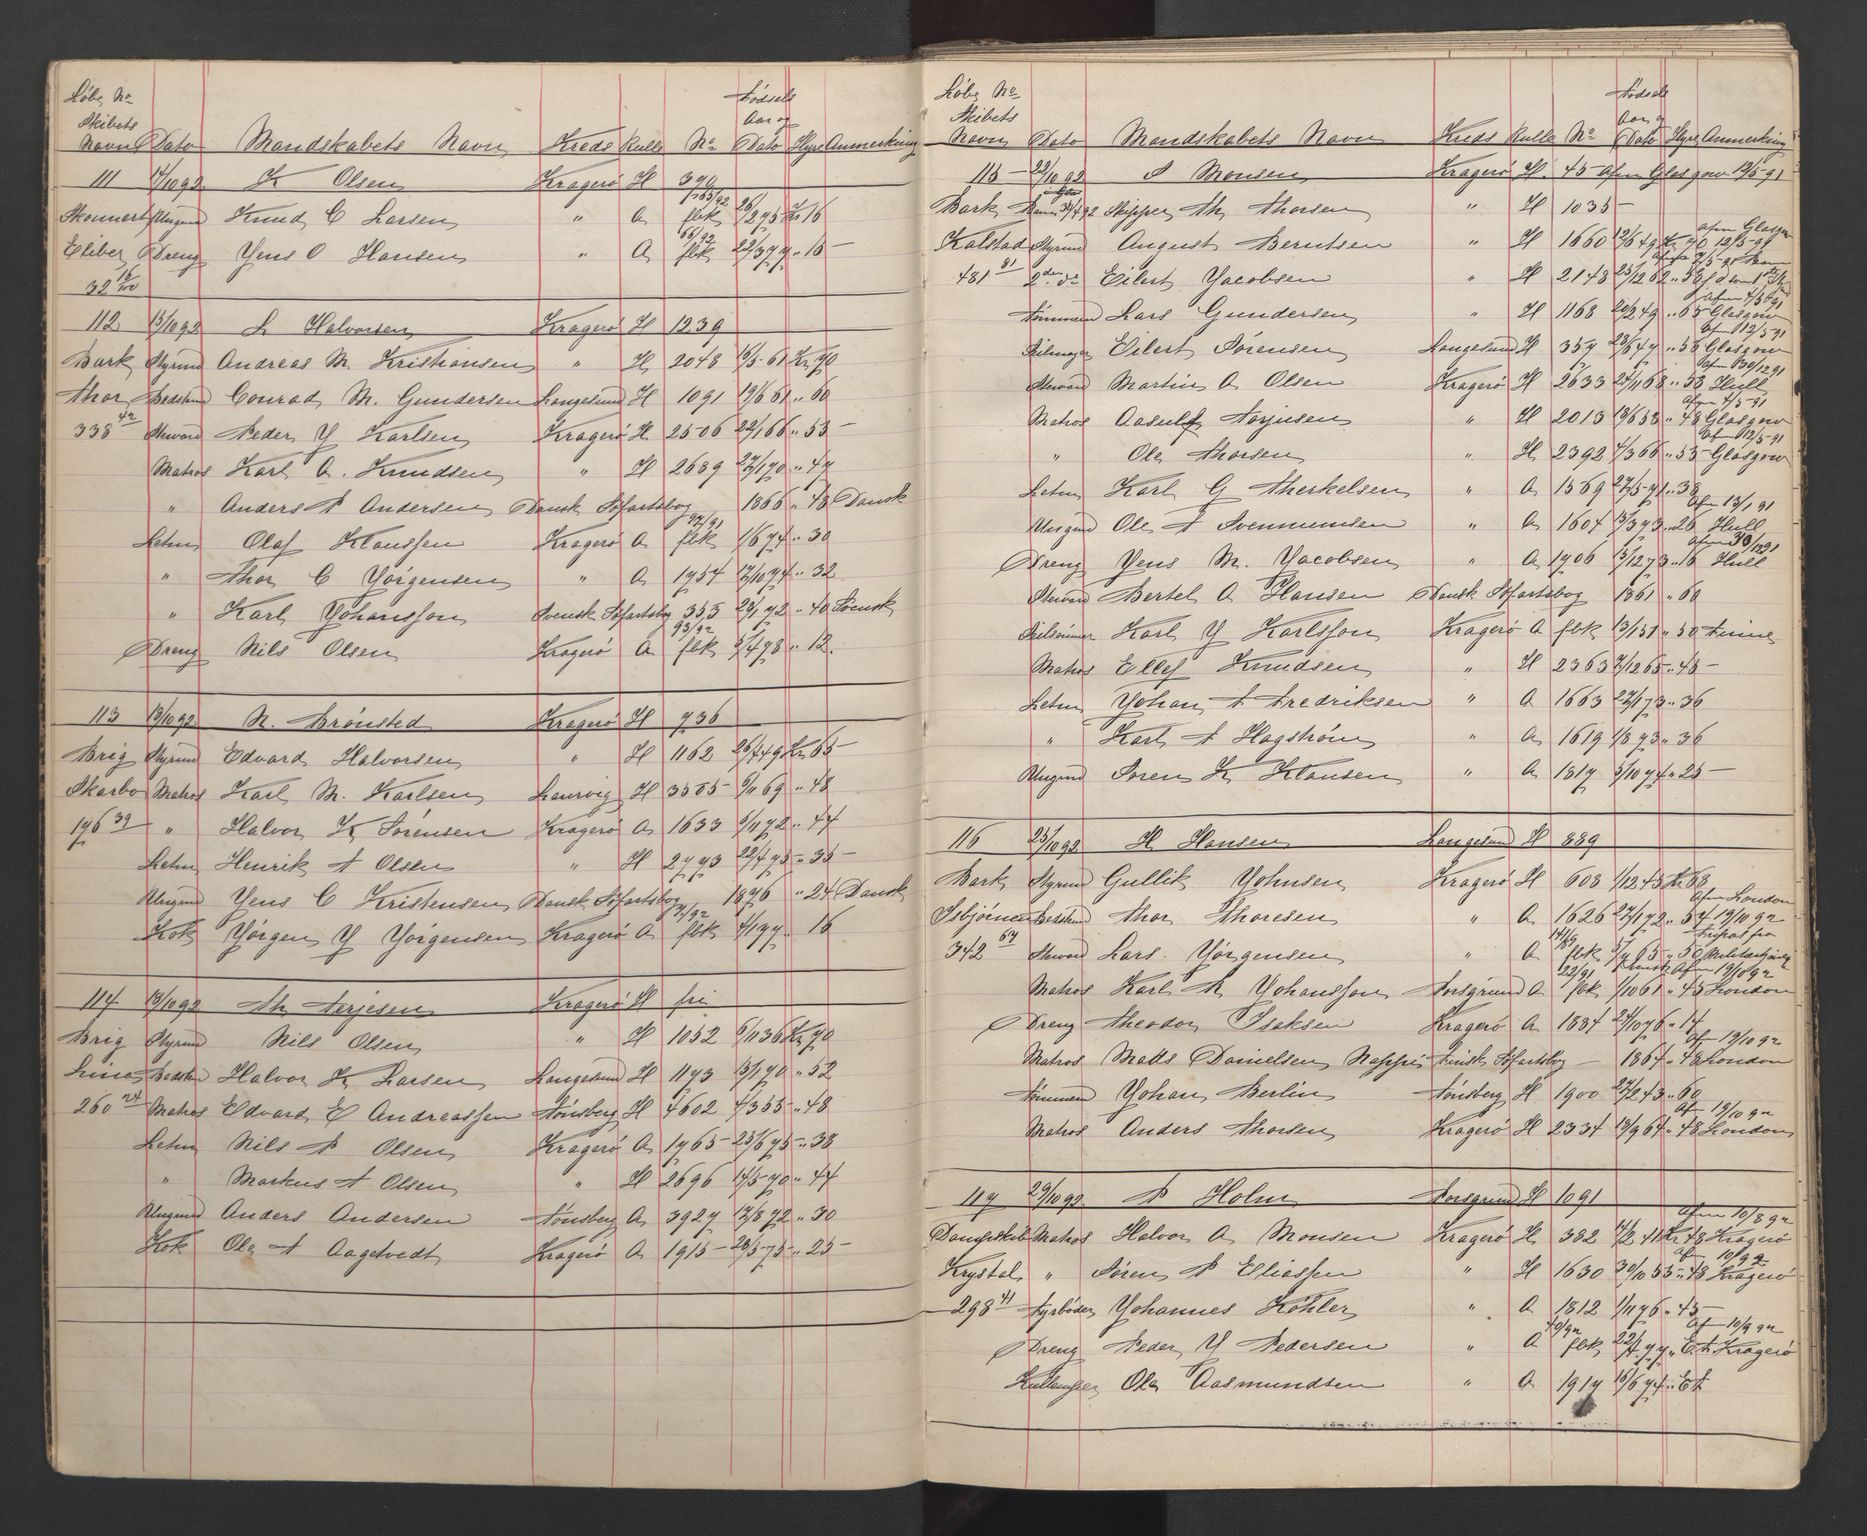 Løbe No
Skibets Navn Dato Mandskabets Navn Kreds Rulle No Fødsels Aar og Dato Hyre Anmerkning
111 17/10 92 K Olsen Kragerø H 390
Skonnert Ungmd Knud C Larsen " A 165/92 fbk 26/2 75 Kr 16
Eliber Dreng Yens O Hansen " A 66/92 fbk 22/3 77 " 15
32 16/100
112 15/10 92 L Halvorsen Kragerø H 1239
Bark Styrmd Andreas M. Kristiansen " H 2048 16/5 61 Kr 70
Thor Bedstmd Conrad M. Gundersen Langesund H 1091 19/6 61 " 60
338 42 Steward Peder Y Karlsen Kragerø H 2506 22/1 66 " 55
Matros Karl A. Knudsen " H 2689 27/1 70 " 47
" Anders P Andersen Dansk Søfartsbog 1866 " 48 Dansk
Letm Olaf Klaussen Kragerø A 97/91 fbk 1/6 74 " 30
" Thor C Yørgensen " A 1954 12/10 74 " 32
" Karl Yohansson Svensk Søfartsbog 355 23/1 72 " 40 Svensk
Dreng Nils Olsen Kragerø A 93/92 fbk 5/4 78 " 12.
113 13/10 92 N. Brønsted Kragerø H 736
Brig Styrmd Edvard Halvorsen " H 1162 26/4 49 Kr 65
Skarbo Matros Karl M. Karlsen Laurvig H 3585 6/11 69 " 48
196 39 " Halvor K Sørensen Kragerø A 1633 6/11 72 " 44
Letm Henrik A Olsen " H 2773 22/4 75 " 35
Ungmd Yens C Kristensen Dansk Søfartsbog 1876 " 24 Dansk
Kok Yørgen Y Yørgensen Kragerø A 7/92 fbk 4/1 77 " 16
114 13/10 92 Th Terjesen Kragerø H fri
Brig Styrmd Nils Olsen " H 1052 6/11 36 Kr 70
Lina Bedstmd Halvor K Larsen Langesund H 1173 15/1 70 " 52
260 24 Matros Edvard E Andreassen Tønsberg H 4602 4/3 55 " 48
Letm Nils P Olsen Kragerø A 1765 25/6 75 " 38
" Markus A Olsen " H 2696 14/5 70 " 44
Ungmd Anders Andersen Tønsberg A 3927 12/8 72 " 30
Kok Ole A Aagetvedt Kragerø A 1915 28/5 75 " 25
Løbe No
Skibets Navn Dato Mandskabets Navn Kreds Rulle No Fødsels Aar og Dato Hyre Anmerkning
115 22/10 92 P Monsen Kragerø H. 45 Afm Glasgow 12/5-91
Bark 30/4 92 Skipper Th Thorsen " H 1035
Kalstad Styrmd August Berntsen " H 1660 12/6 49 Kr 70 Afm Glasgow 12/5-91
481 91 2den do Eilert Yacobsen " H 2148 25/12 62 " 58
Tømmermd Lars Gundersen " H 1168 20/2 49 " 65 Afm 4/5 91 Glasgow
Seilmager Eilert Sørensen Langesund H 357 28/6 47 " 58 Afm 12/5-91 Glasgow
Steward Martin A Olsen Kragerø H 2633 24/11 68 " 58 Afm 30/12 91 Hull
Matros Aasulf Terjesen " H 2013 18/6 58 " 48 Afm 4/5-91 Glasgow
" Ole Thorsen " H 2392 4/3 66 " 55 Afm 12/5-91 Glasgow
Letm Karl G Therkelsen " A 1569 27/5 71 " 38
Ungmd Ole P Svennumsen " A 1604 13/3 73 " 26 Afm 13/1 91 Hull
Dreng Yens M. Yacobsen " A 1706 5/12 73 " 16 Afm 30/12 91 Hull
Steward Bertel A Hansen Dansk Søfartsbog 1861 " 60
Karl Y Karlsson Kragerø A fbk 13/1 51 " 50
Matros Ellef Knudsen " H 2363 7/12 65 " 45
Letm Yohan A Fredriksen " A 1663 22/1 73 " 36
" Karl A Hagstrøm " A 1619 1/8 73 " 36
Ungmd Søren K Klausen " A 1817 5/10 74 " 25
116 25/10 92 H Hansen Langesund H 889
Bark Styrmd Gullik Yohnsen Kragerø H 608 1/12 45 Kr 68
Isbjørnen Bedstmd Thor Thoresen " A 1626 27/1 72 " 54 Afm London 19/10 92
342 67 Steward Lars Yørgensen " A 141/89 fbk 5/9 65 " 50 Fripas fra
Matros Karl M Yohansson Porsgrund A 22/91 fbk 1/10 61 " 45 Afm 19/8 92 London
Dreng Theodor Isaksen Kragerø A 1884 24/10 76 " 14
Matros Matts Danielsen Nappo Finsk Søfartsbog 1864 " 48 Afm 19/10 92 London
Tømmermd Yohan Berlin Tønsberg H 1900 27/2 43 " 60
Matros Anders Thorsen Kragerø H 2334 13/9 64 " 48 Afm 19/10 92 London
117 29/10 92 P Holm Porsgrund H 1091
Dampskib Matros Halvor A Monsen Kragerø H 382 14/2 41 Kr 48 Afm 10/8 92 Kragerø
Krystal " Søren P Eliassen " H 1630 30/10 55 " 48 Afm 10/9 92 Kragerø
298 41 Fyrbøder Yohannes Køhler " A 1812 1/11 76 " 45
Dreng Peder Y Pedersen " A 40/92 fbk 22/4 77 " E.t Afm 10/9 92 Kragerø
Kullemper Ole Aasmundsen " A 1917 16/6 74 " Et